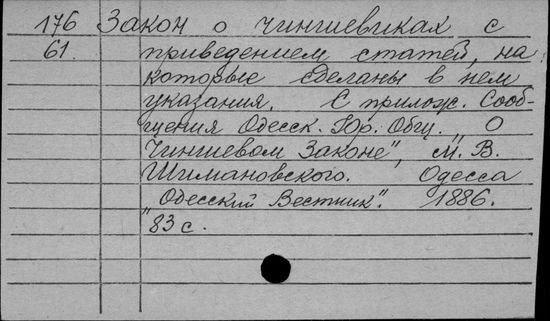 176 Закон о чиншевиках с
61. приведением статей, на
которые сделаны в нем
указания. С прилож. Сооб-
щения Одесск. Юр. Общ. „О
Чиншевом Законе", М. В.
Шимановского. Одесса
„Одесский Вестник". 1886.
83 с.